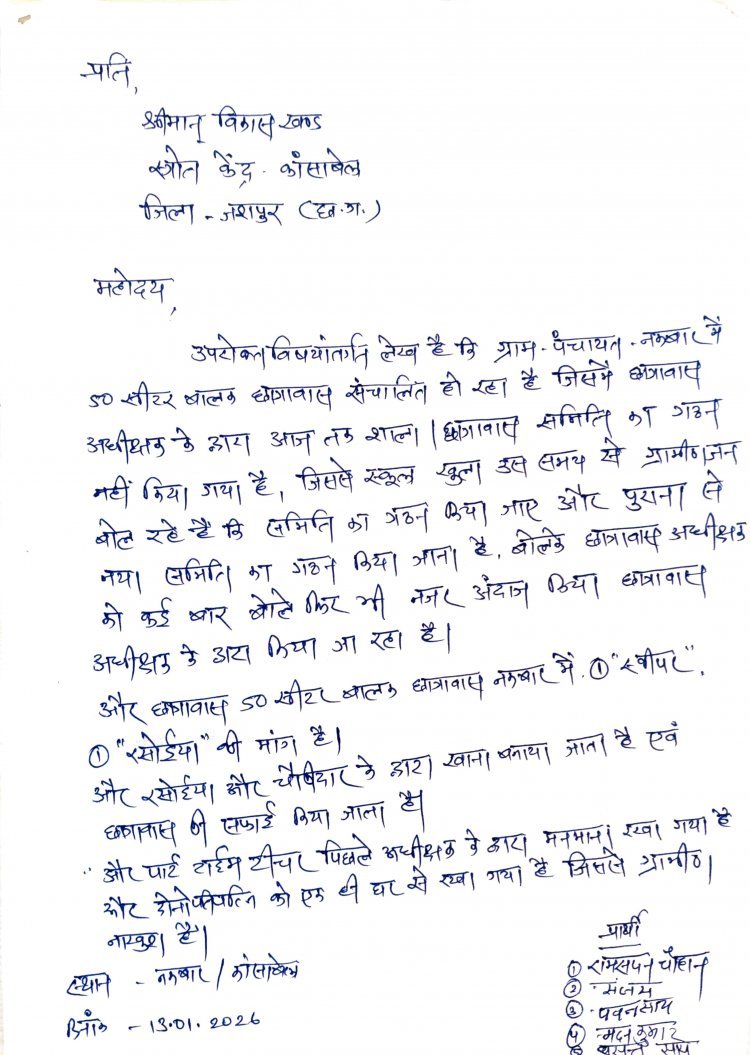 प्रति,
श्रीमान् विकास खण्ड
स्त्रोत केंद्र - कांसाबेल
जिला - जशपुर (छ.ग.)
महोदय,
उपरोक्त विषयांतर्गत लेख है कि ग्राम - पंचायत - नकबार में
50 सीटर बालक छात्रावास संचालित हो रहा है जिसमें छात्रावास
अधीक्षक के द्वारा आज तक शाला / छात्रावास समिति का गठन
नहीं किया गया है, जिससे स्कूल खुला उस समय से ग्रामीण जन
बोल रहे हैं कि समिति का गठन किया जाए और पुराना से
नया समिति का गठन किया जाना है, बोलके छात्रावास अधीक्षक
को कई बार बोले फिर भी नजर अंदाज किया छात्रावास
अधीक्षक के द्वारा किया जा रहा है।
और छात्रावास 50 सीटर बालक छात्रावास नकबार में. ① "स्वीपर",
① "रसोईया" की मांग है।
और रसोईया और चौकीदार के द्वारा खाना बनाया जाता है एवं
छात्रावास की सफाई किया जाता है।
" और पार्ट टाईम टीचर पिछले अधीक्षक के द्वारा मनमाना रखा गया है
और दोनो पतिपत्नि को एक ही घर से रखा गया है जिससे ग्रामीण
नाखुश है।
स्थान - नकबार / कांसाबेल
दिनाँक - 13.01.2026
प्रार्थी
① रामसपन चौहान
② संजय
③ पवनसाय
④ मदन कुमार
⑤ बसन्त साय